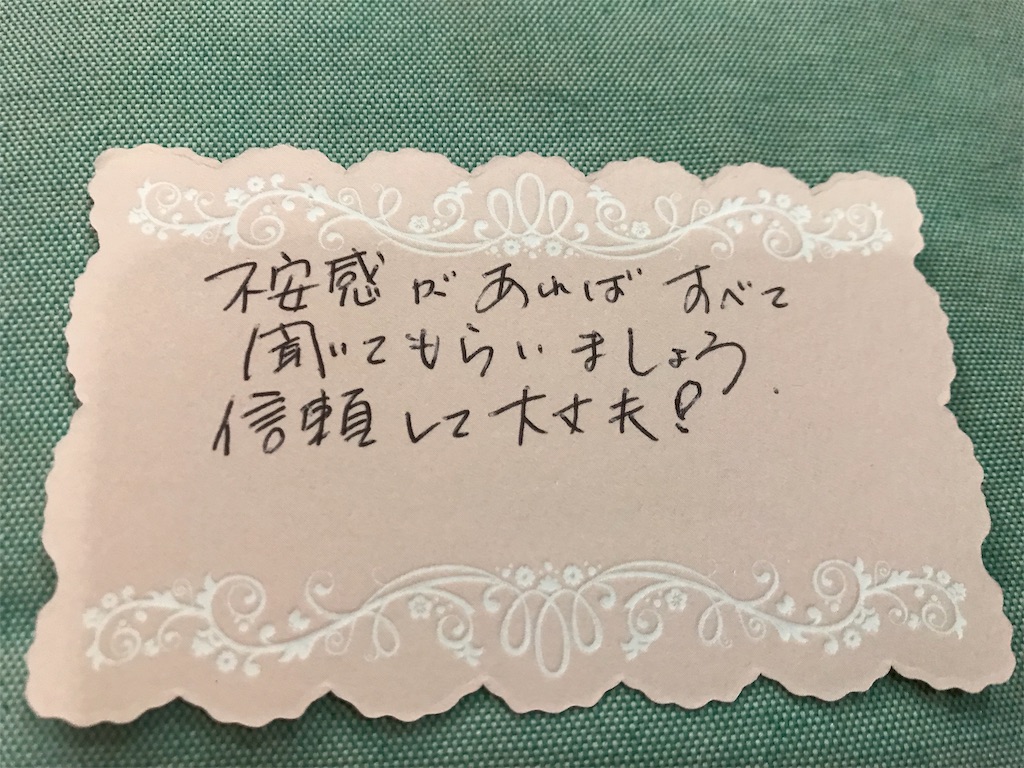 不安感があれば すべて
聞いてもらいましょう.
信頼して大丈夫!